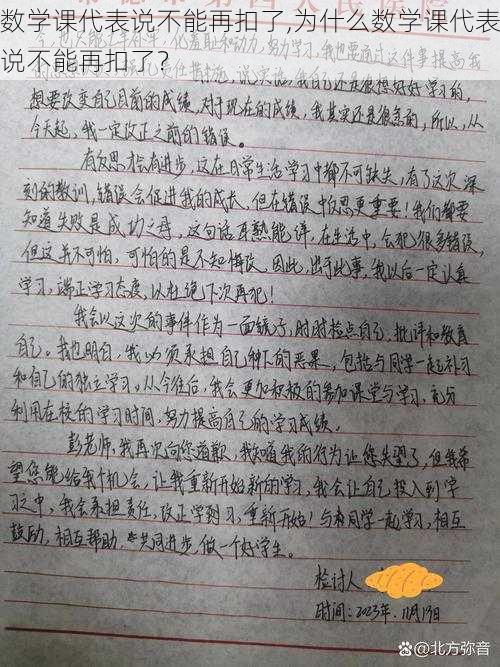 数学课代表说不能再扣了,为什么数学课代表
说不能再扣了?
想要改变自己目前的成绩,对于现在的成绩,我其实还是很急的,所以,从
今天起,我一定改正之前的错误。
有反思才有进步,这在日常生活学习中都不可缺失,有了这次深
刻的教训,错误会促进我的成长,但在错误中反思更重要!我们都要
知道失败是成功之母,这句话耳熟能详,在生活中,会犯很多错误,
但这并不可怕,可怕的是不知悔改。因此,出于此事,我以后一定认真
学习,端正学习态度,以杜绝下次再犯!
我会以这次的事件作为一面镜子,时时检点自己,批评和教育
自己。我也明白,我必须承担自己种下的恶果,包括与同学一起补习
和自己的独立学习。从今往后,我会更加积极的参加课堂与学习,充分
利用在校的学习时间,努力提高自己的学习成绩。
彭老师,我再次向您道歉,我知道我的行为让您失望了,但我希
望您能给我个机会,让我重新开始新的学习,我会让自己投入到学
习之中,我会承担责任,改正学习,重新开始!与同学一起学习,相互
鼓励,相互帮助,共同进步,做一个好学生。
检讨人
时间:2023年.11月13日
北方弥音